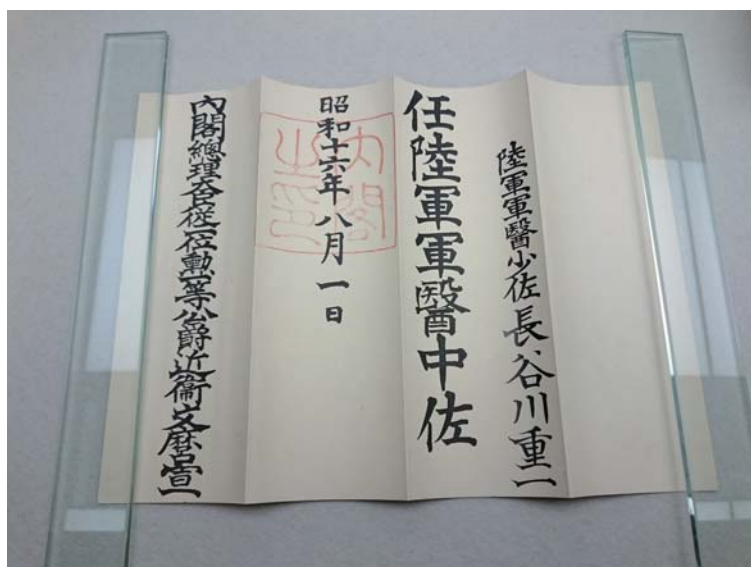 陸軍軍醫少佐長谷川重一
任陸軍軍醫中佐
昭和十六年八月一日
內閣之印
內閣總理大臣從二位勳一等公爵近衞文麿宣